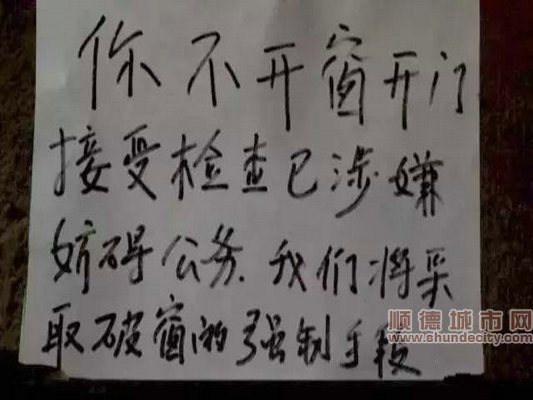 你不开窗开门
接受检查已涉嫌
妨碍公务.我们将采
取破窗的强制手段
顺德城市网
www.shundecity.com